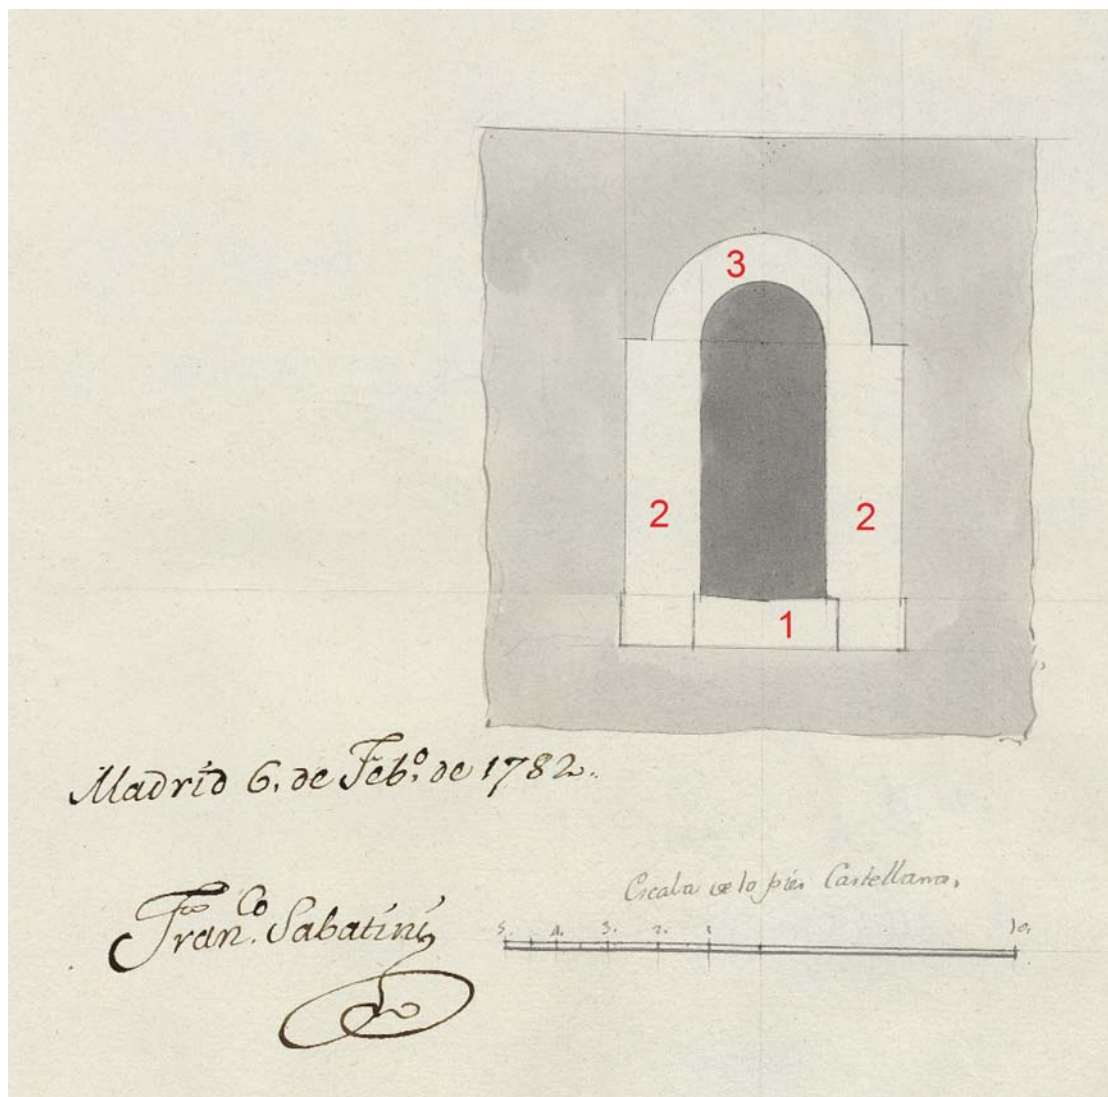 3
2 2
1
Madrid 6. de Feb.º de 1782.
Fran.co Sabatini
Escala de 10 pies Castellanos.
5. 4. 3. 2. 1 10.